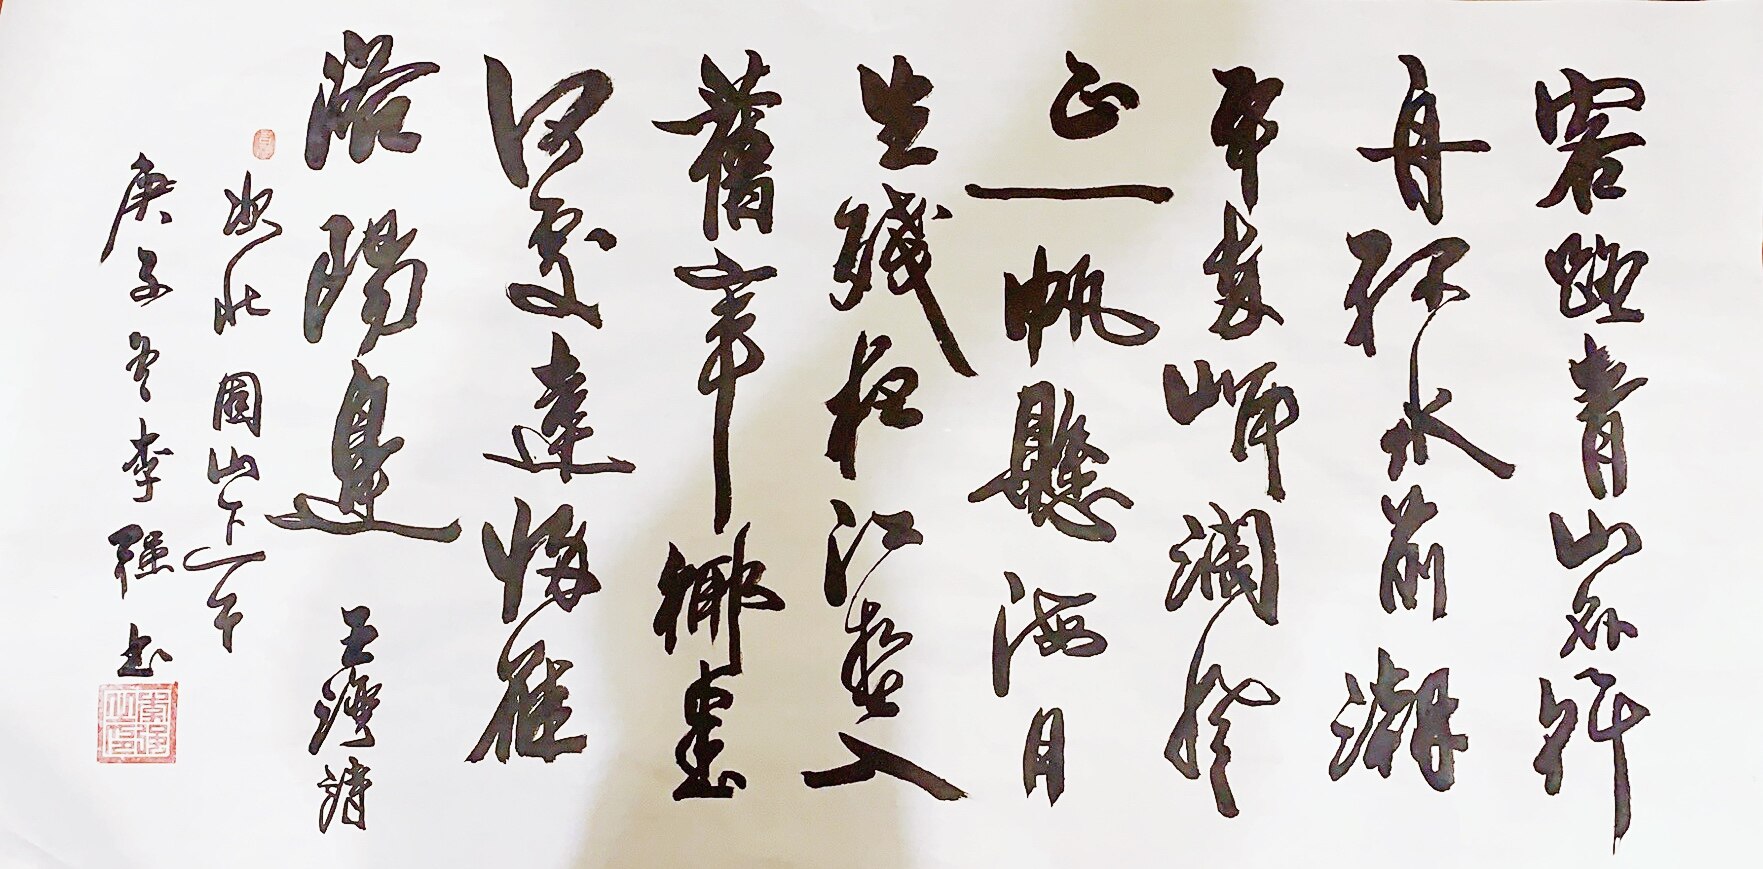 客路青山外行
舟綠水前潮
平兩岸濶風
正一帆懸海月
生殘夜江春入
舊年鄉書
何處達歸雁
洛陽邊 王灣詩
次北固山下
庚子冬李强书
李强之印